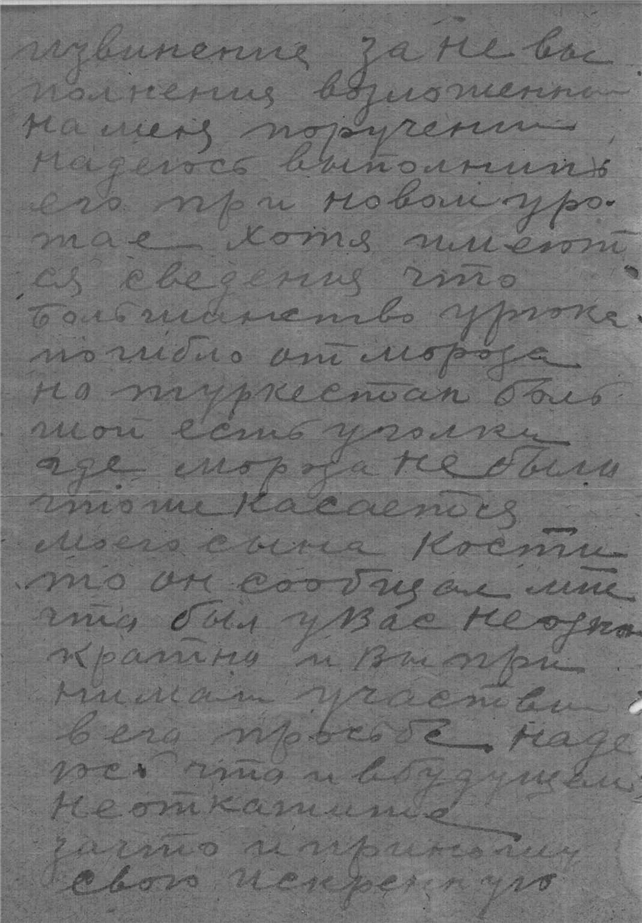 извинение за не вы
полнения возложенни
на меня поручении
надеюсь выполнить
его при новом уро-
жае хотя имеют
ся сведения что
большинство урюка
погибло от мороза
но туркестан боль
шой есть уголки
где мороза не было
что же касается
моего сына Кости
то он сообщал мне
что был у Вас неодно
кратно и Вы при
нимали участии
в его просьбе наде
юсь что и в будущем
не откажите
за что и приношу
свою искреннюю